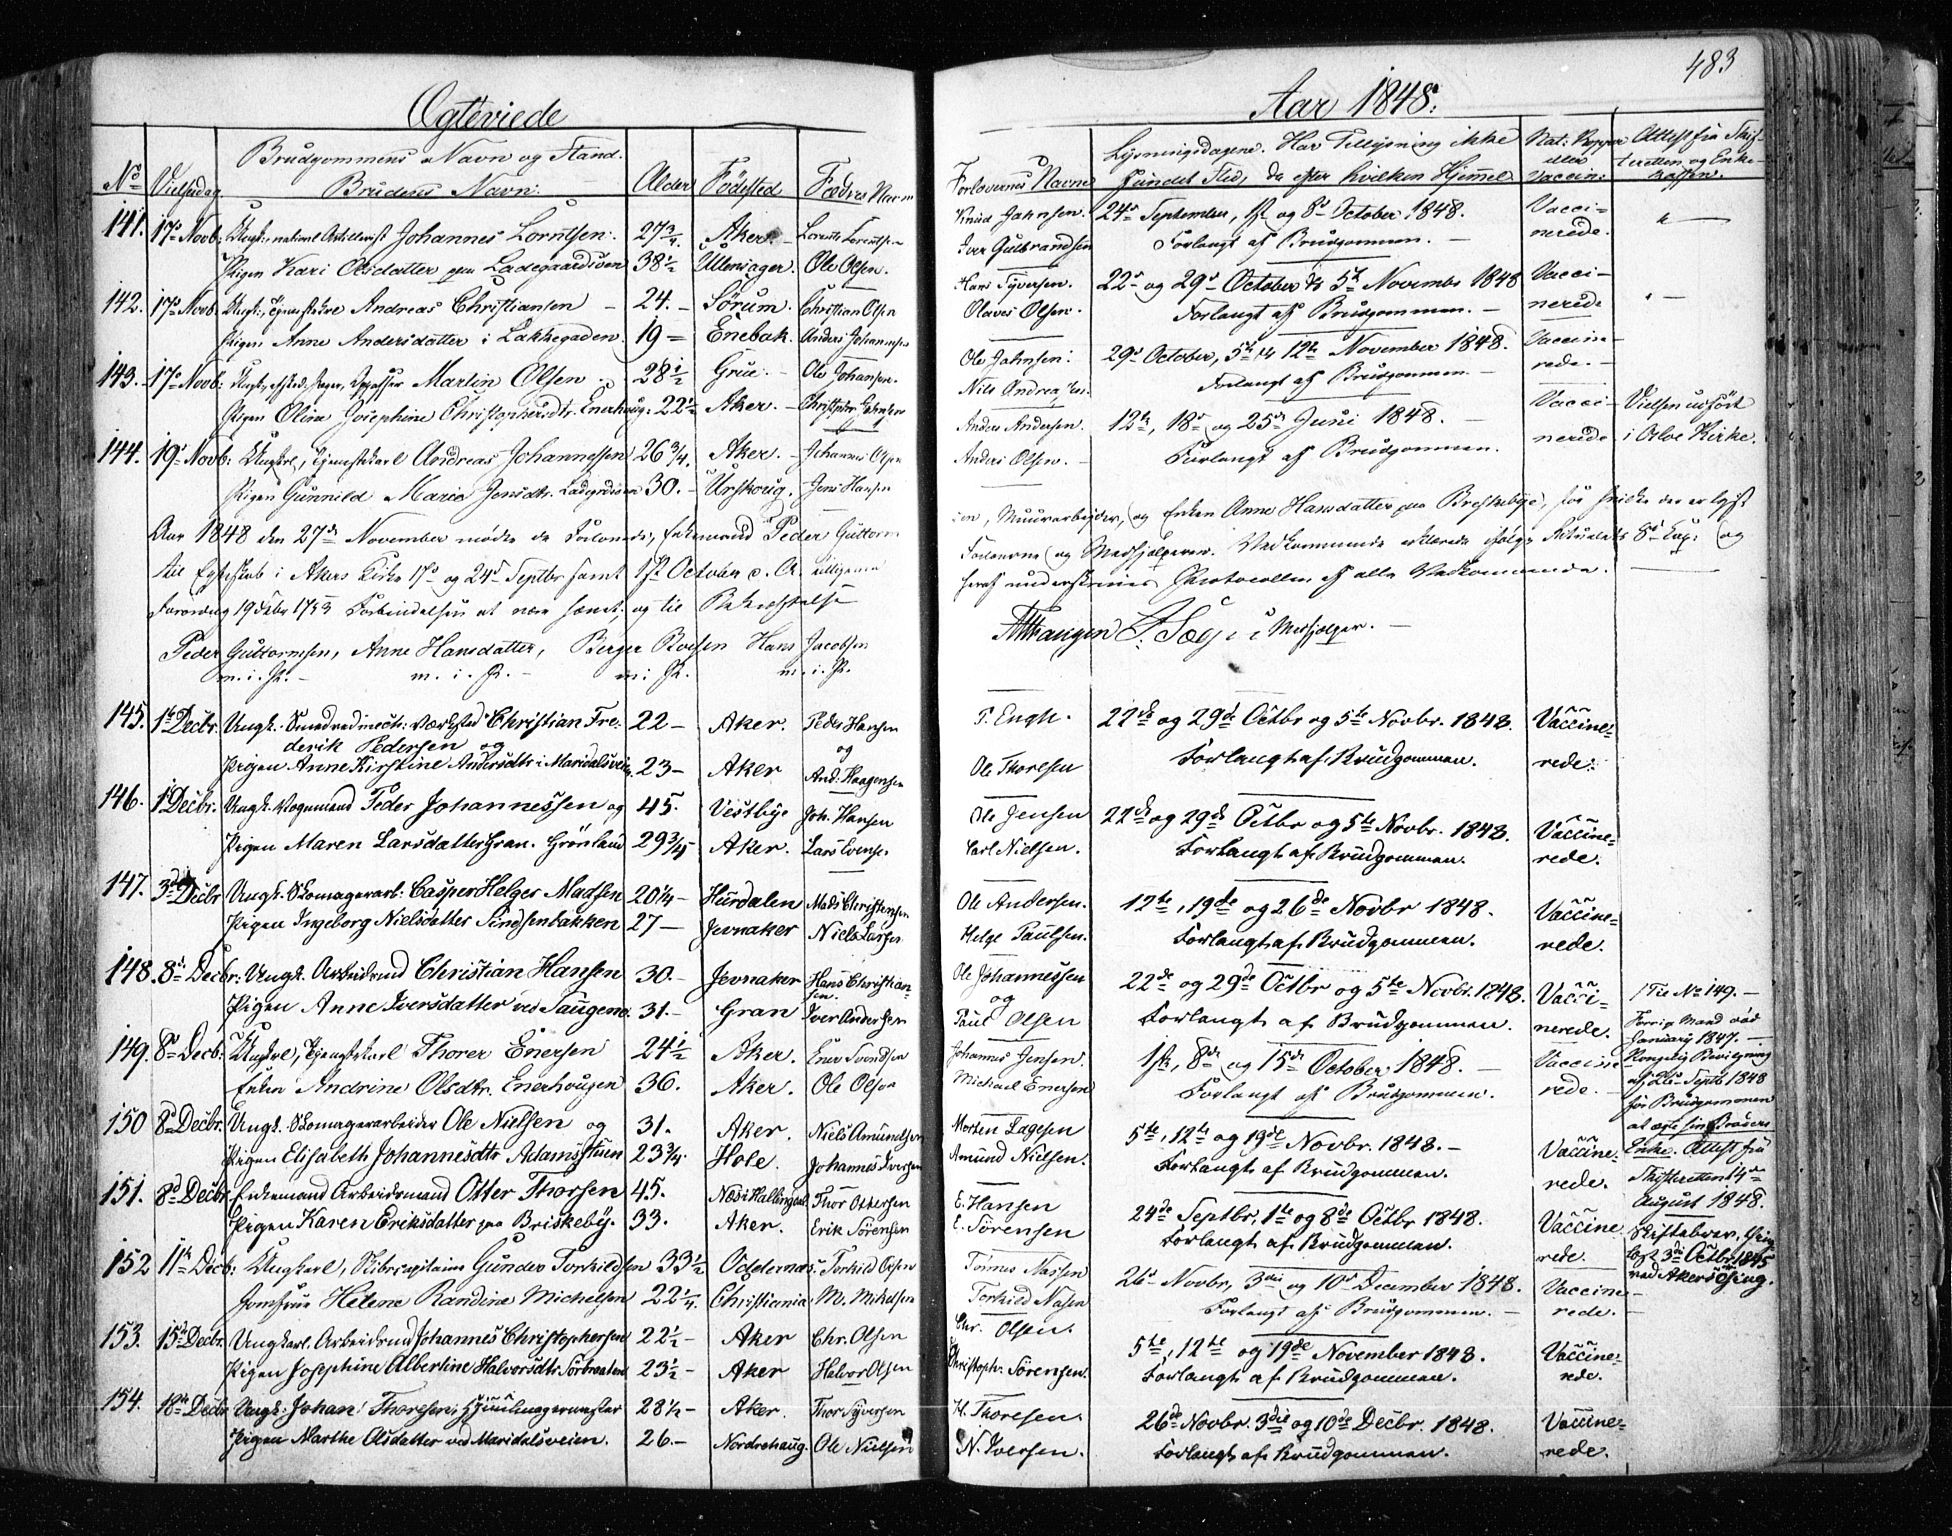 483
Ægteviede
Aar 1848.
No
Vielsedag
Brudgommens Navn og Stand.
Brudens Navn.
Alder
Fødested
Fædres Navn
Forlovernes Navne
Lysningsdagene. Har Tillysning ikke
fundet Sted, da efter hvilken Hjemmel
Nat: Kopper
eller
Vaccin:
Attest fra Skif-
teretten og Enke-
kassen.
141. 17de Novb: Ungk., national Artillerist Johannes Lorntsen. 27 3/4 Aker. Lorents Lorentsen Knud Jahnsen. 24de September, 1ste og 8de October 1848. Vacci-
Pigen Kari Olsdatter paa Ladegaardsøen 38 1/2 Ullensager. Ole Olsen. Iver Gulbrandsen Forlangt af Brudgommen. nerede.
142. 17de Novb. Ungk., Tjenestekarl Andreas Christiansen 24. Sørum. Christian Olsen Hans Syversen. 22de og 29de October & 5te Novembr 1848 Vacci-
Pigen Anne Andersdatter i Lakkegaden. 19 Enebak. Anders Johannesen Olaves Olsen. Forlangt af Brudgommen. nerede
143. 17de Novb: Ungk., Martin Olsen 28 1/2 Grue. Ole Johansen. Ole Jahnsen: 29de October, 5te & 12te November 1848. Vaccine-
Pigen Oline Josephine Christophersdtr. Enerhoug: 22 1/2 Aker. Christopher Jahnsen Nils Andreasen. Forlangt af Brudgommen rede.
144. 19de Novb: Ungkarl, Tjenestekarl Andreas Johannessen 26 3/4. Aker. Johannes Olsen Anders Andersen. 12te, 18de og 25de Juni 1848. Vacci- Vielsen udført
Pigen Gunnild Marie Jensdtr. Ladegrdsøen 30. Urskoug. Jens Hansen Anders Olsen. Forlangt af Brudgommen. nerede i Oslo Kirke.
Aar 1848 den 27de November mødte de Forlovede, Enkemand Peder Guttorm
sen, Muurarbeyder, og Enken Anne Hansdatter paa Breskebye, for hvilke der er lyst
til Egteskab i Akers Kirke 17de og 24de Septbr samt 1ste October d. A. tilligemed
Forloverne og Medhjelperen. Vedkommende erklærede ifølge Ritualets 8de Cap: og
Forordng 19 Febr 1783 Forbindelsen at være hævet, og til Bekræftelse
heraf underskrives Protocollen af alle Vedkommende.
Peder Guttormsen, Anne Hansdatter, Berger Roesen Hans Jacobsen
m. i. P. m. i. P. m. i. P. m. i. P.
Medhjelper.
145. 1ste Decbr. Ungk. Christian Fre- 22 Aker. Peder Hansen P. Engh. 22de og 29de Octbr og 5te Novbr. 1848. Vaccine-
derik Pedersen og og
Pigen Anne Kirstine Andersdtr i Maridalsveien 23 Aker And: Haagensen Ole Thoresen Forlangt af Brudgommen. rede.
146. 1ste Decbr. Ungk. Vognmand Peder Johannessen og 45. Vestbye Joh. Hansen Ole Jensen 22de og 29de Octbr og 5te Novbr. 1848. Vaccine-
Pigen Maren Larsdatter Gran. Grønland 29 3/4 Aker. Lars Evensen Carl Nielsen. Forlangt af Brudgommen. rede.
147. 3de Decbr Ungk. Skomagerarb: Casper Helger Madsen 20 1/4 Hurdalen Mads Christensen Ole Andersen. 12te, 19de og 26de Novbr 1848. Vaccine-
Pigen Ingeborg Nielsdatter Sindsenbakken 27 Jevnaker Niels Larsen Helge Paulsen. Forlangt af Brudgommen. rede.
148. 8de Decbr: Ungk. Arbeidsmd Christian Hansen 30. Jevnaker Hans Christian- Ole Johannessen 22de og 29de Octbr og 5te Novbr. 1848. Vacci- Til No 149.
sen. og
Pigen Anne Iversdatter ved Saugene 31. Gran Iver Andersen Paul Olsen Forlangt af Brudgommen. nerede. Forrige Mand død
January 1847.
149. 8de Decb: Ungkrl, Tjenestekarl Thorer Enersen 24 1/2 Aker. Ener Svendsen Johannes Jensen. 1ste, 8de og 15de October 1848. Vaccine- Kongelig Bevilgning
Enken Andrine Olsdtr. Enerhougen 36. Aker. Ole Olsen Michael Enersen Forlangt af Brudgommen. rede. af 25de Septb 1848
for Brudgommen
at ægte sin Broders
150 8de Decbr. Ungk. Skomagerarbeider Ole Nielsen og 31. Aker. Niels Amundsen Morten Lagesen 5te, 12te og 19de Novbr. 1848. Vaccine- Enke. Attest fra
Pigen Elisabeth Johannesdtr Adamsstuen 23 3/4 Hole. Johannes Iversen Amund Nielsen. Forlangt af Brudgommen. rede. Skifteretten 14de
August 1848.
151. 8de Decbr Enkemand Arbeidsmand Otter Thorsen 45. Næs i Hallingdal Thor Ottersen E. Hansen 24de Septbr, 1ste og 8de Octbr 1848. Vaccine-
Pigen Karen Eriksdatter paa Briskeby. 33. Aker. Erik Sørensen E. Sørensen Forlangt af Brudgommen. rede.
3de Octbr 1845
ved Akers
152 11te Decb: Ungkarl, Skibscapitaine Gunder Torkildsen 33 1/2 Oddernæs. Torkild Olsen Tønnes Nassen 26de Novbr, 3die og 10de December 1848. Vaccine-
Jomfrue Helene Randine Michelsen 22 1/4 Christiania M. Mikelsen Torkild Forlangt af Brudgommen. rede.
153. 15de Decbr. Ungkarl. Arbeidsmd Johannes Christophersen 22 1/2 Aker Chr. Olsen Chr. Olsen. 5te, 12te og 19de November 1848. Vaccine-
Pigen Josephine Albertine Halvorsdtr. Sørbraaten 23 1/2 Aker Halvor Olsen Christoph. Sørensen. Forlangt af Brudgommen. rede.
154. 18de Decbr Ungk: Johan Thoresen, Hjuulmagermester 28 1/2 Aker. Thor Syversen H. Thoresen. 26de Novbr. 3die og 10de Decbr. 1848. Vaccine-
Pigen Marthe Olsdatter ved Maridalsveien. 26. Nordrehaug. Ole Nielsen N. Iversen. Forlangt af Brudgommen. rede.